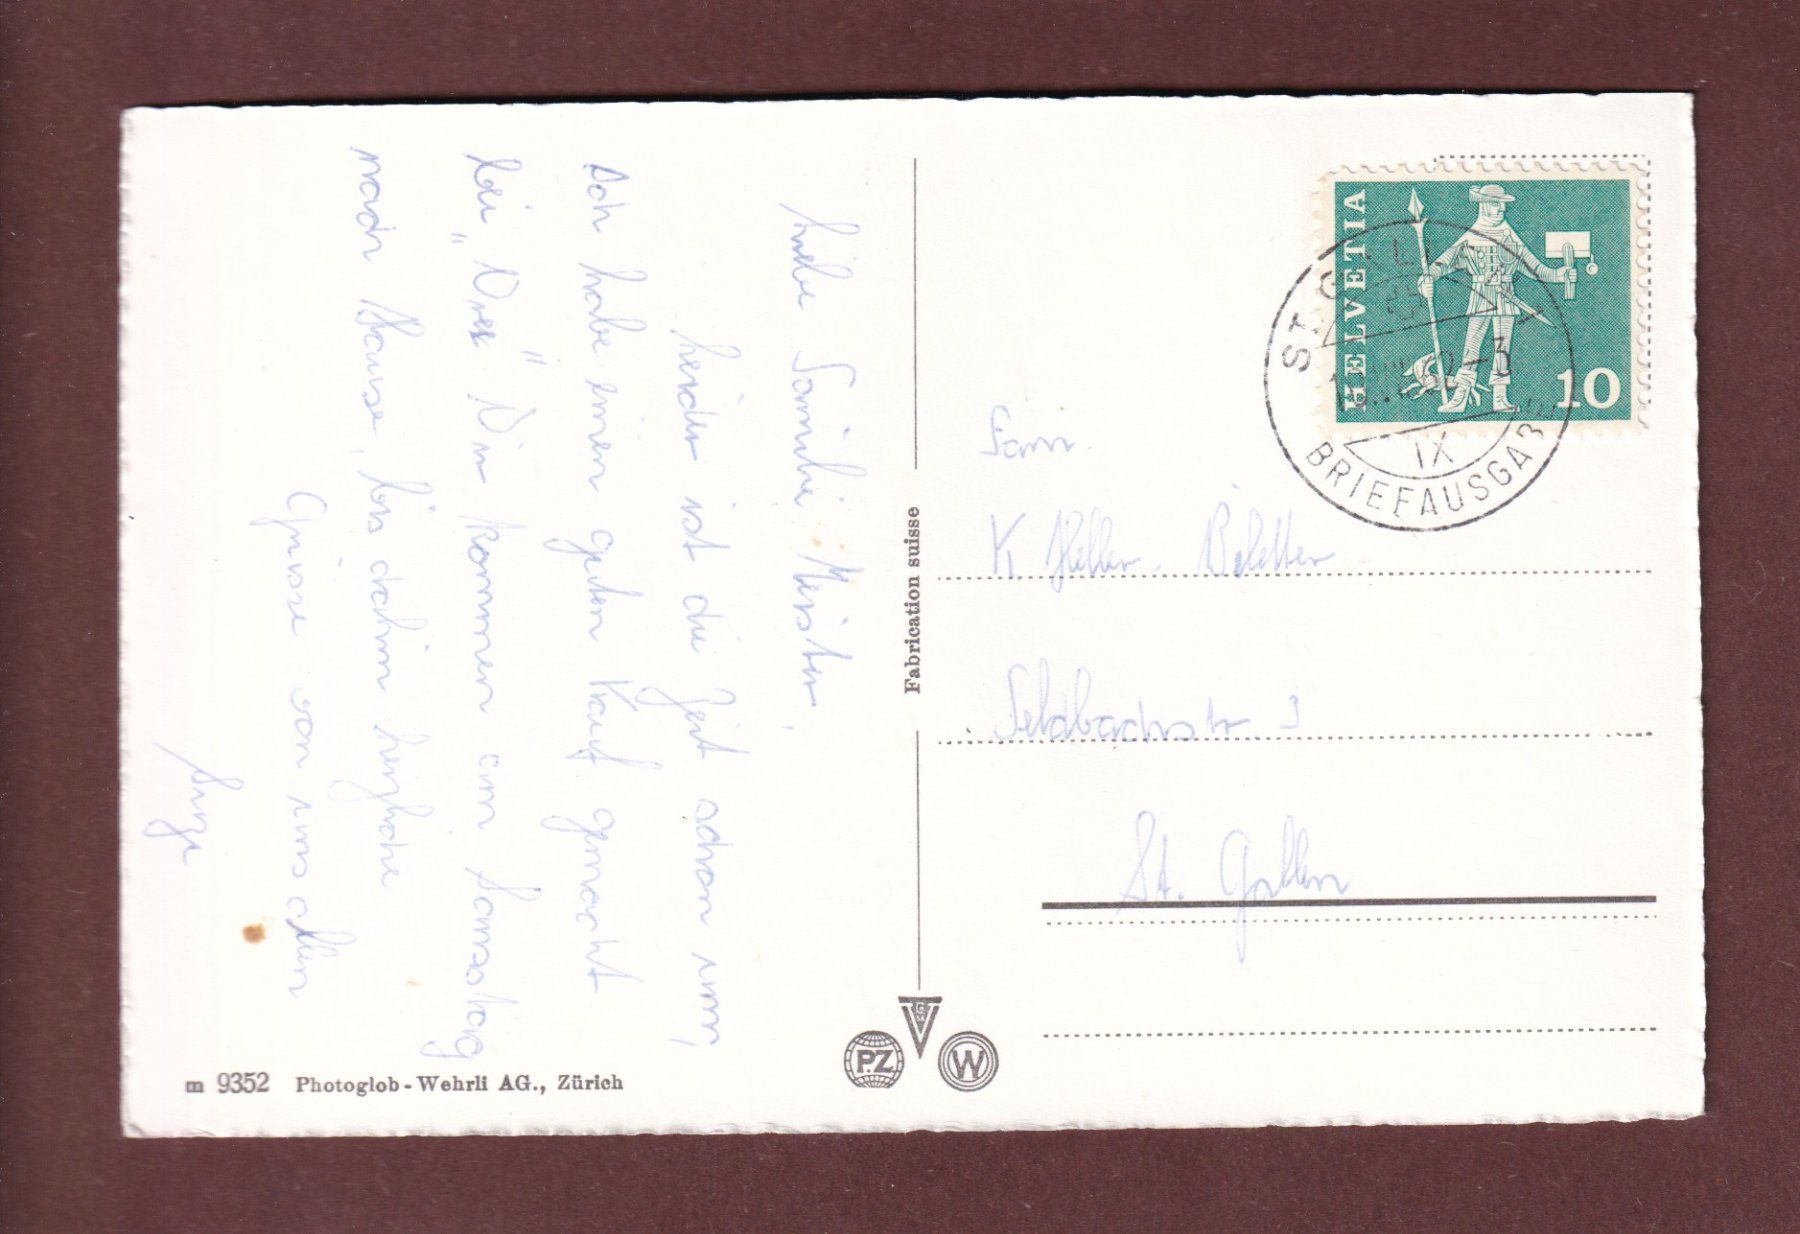 Liebe Familie Meister,
leider ist die Zeit schon um,
Ich habe einen guten Kauf gemacht
bei "Vreni" Wir kommen am Samstag
nach Hause, bis dahin herzliche
Grüsse von uns allen
Fam.
K Heller-
Feldbachstr. 3
St. Gallen
HELVETIA
10
ST. GALLEN 1
62-3
IX
BRIEFAUSGABE
Fabrication suisse
P.Z
W
m 9352 Photoglob-Wehrli AG., Zürich